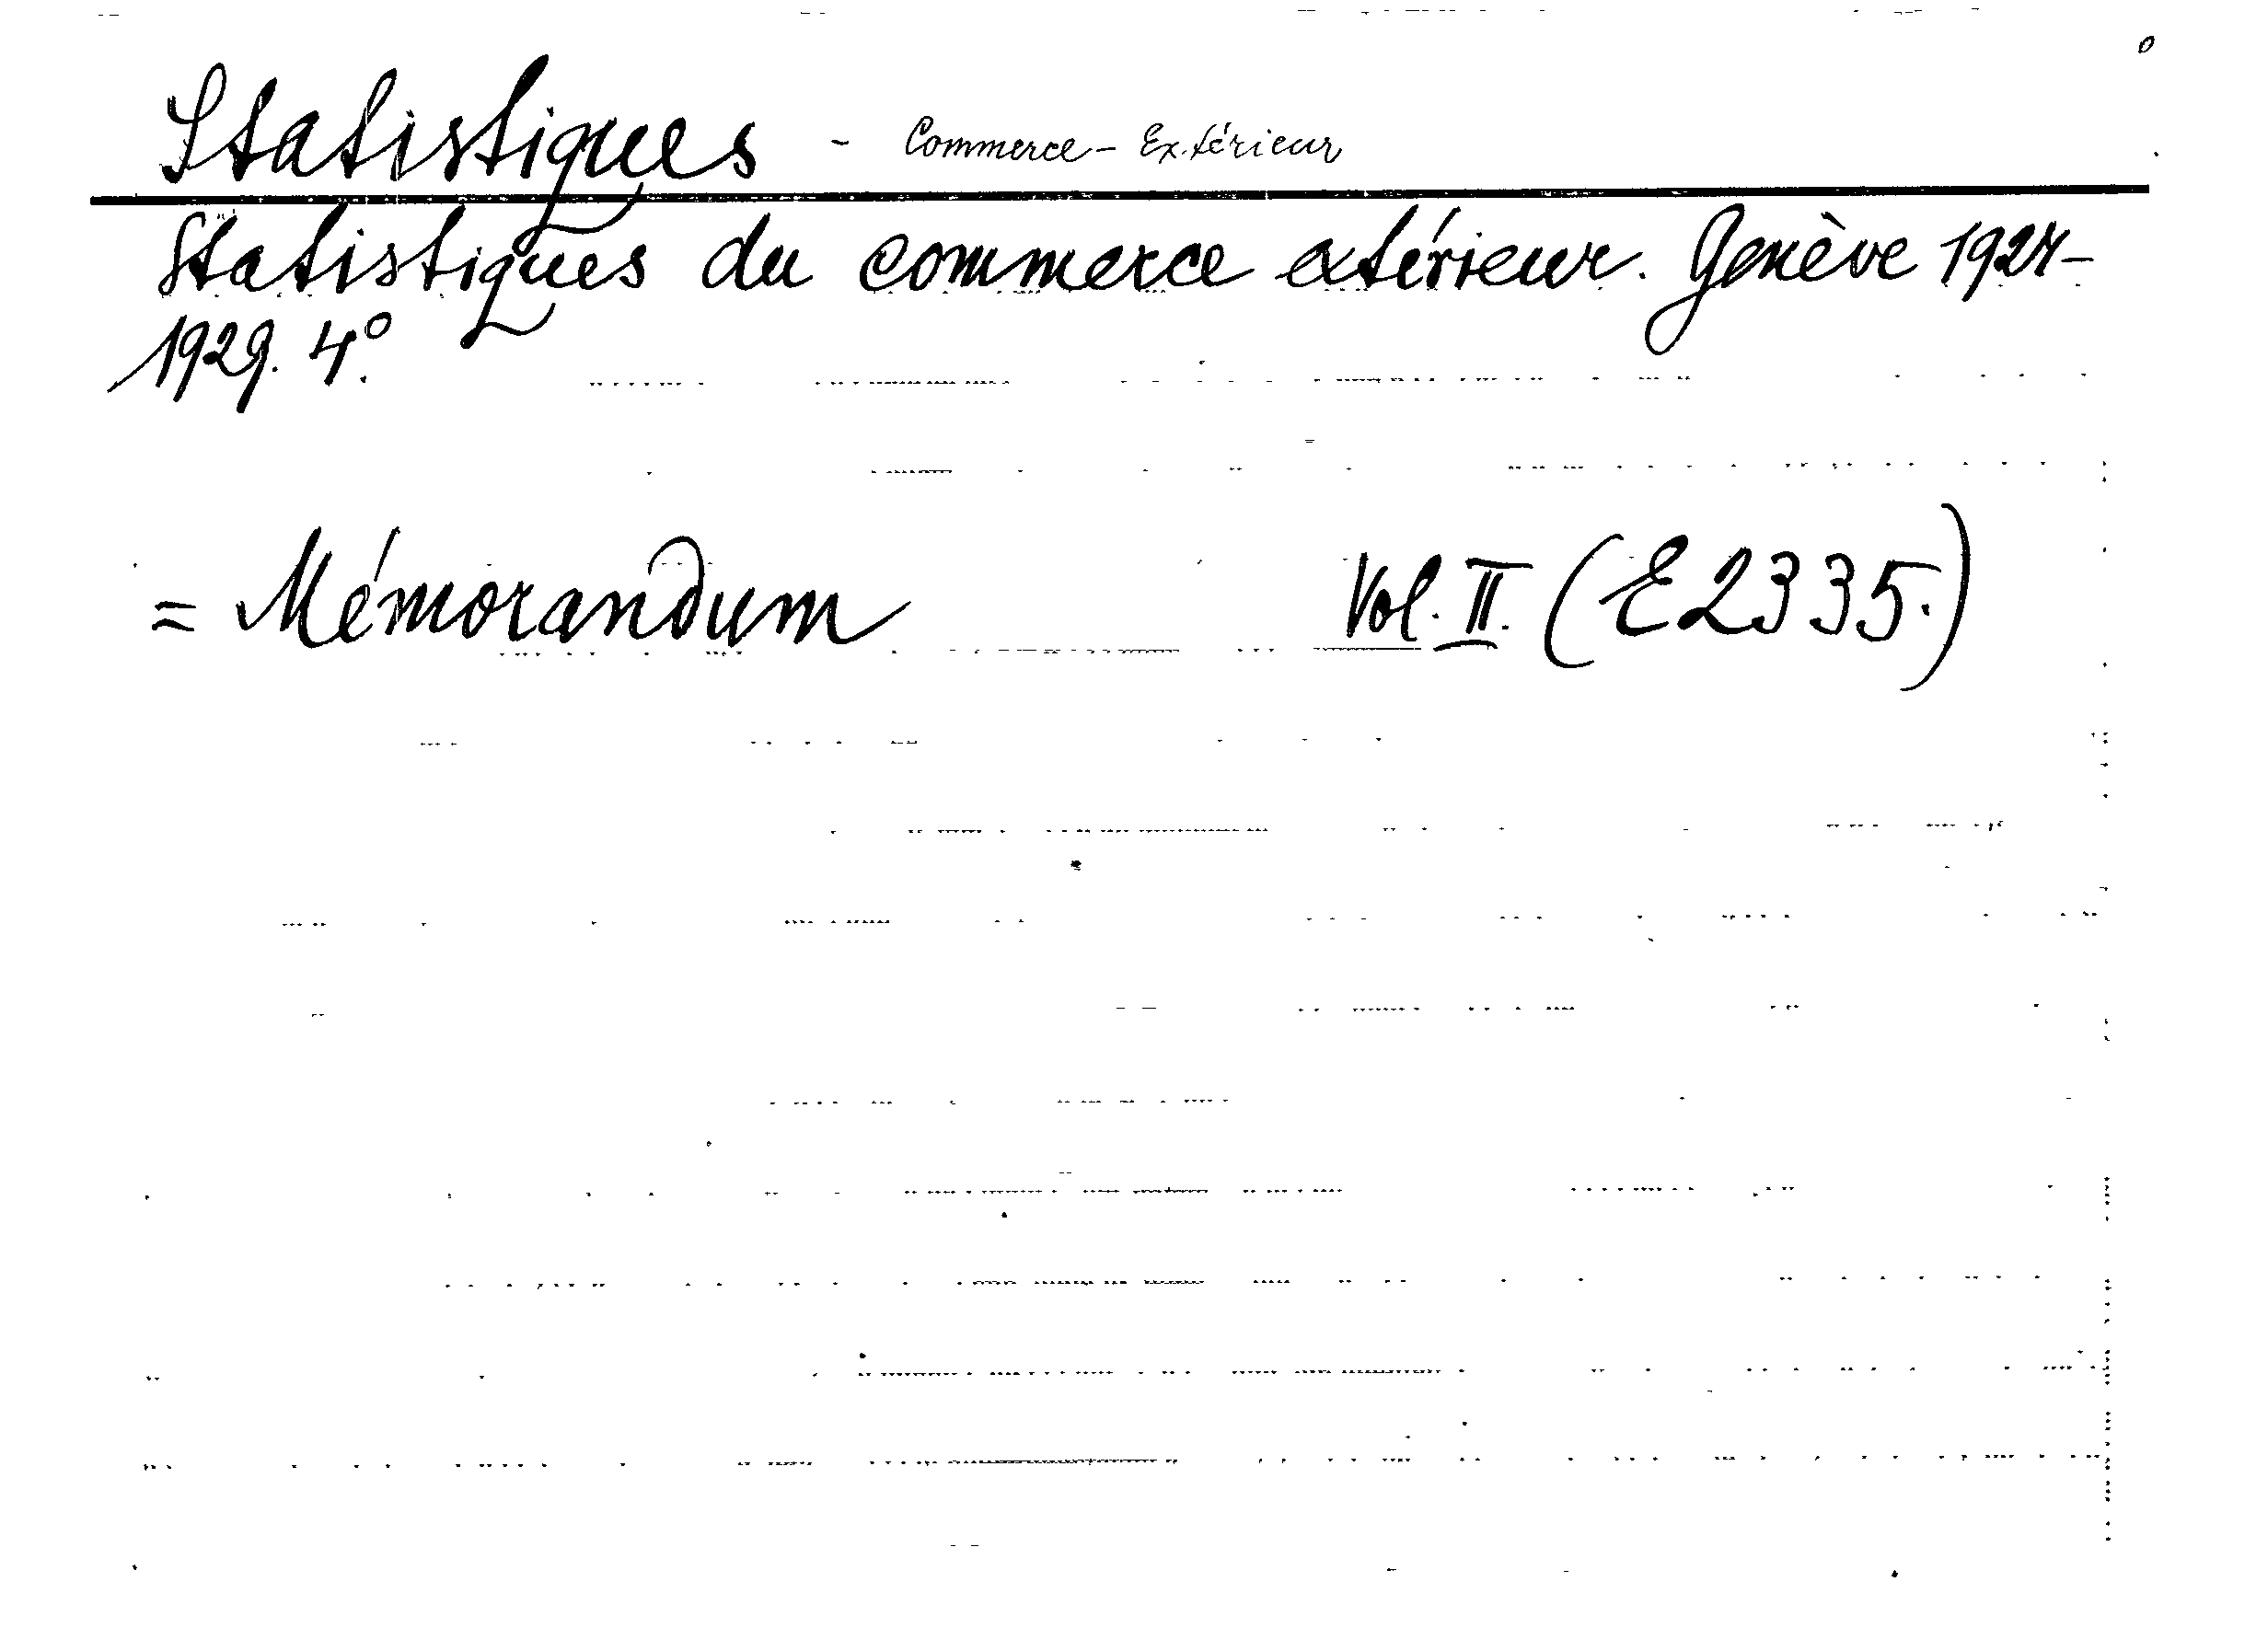 Statistiques - Commerce - Extérieur
Statistiques du commerce extérieur. Genève 1924-
1929. 4°.
= Mémorandum Vol. II. (E2335.)